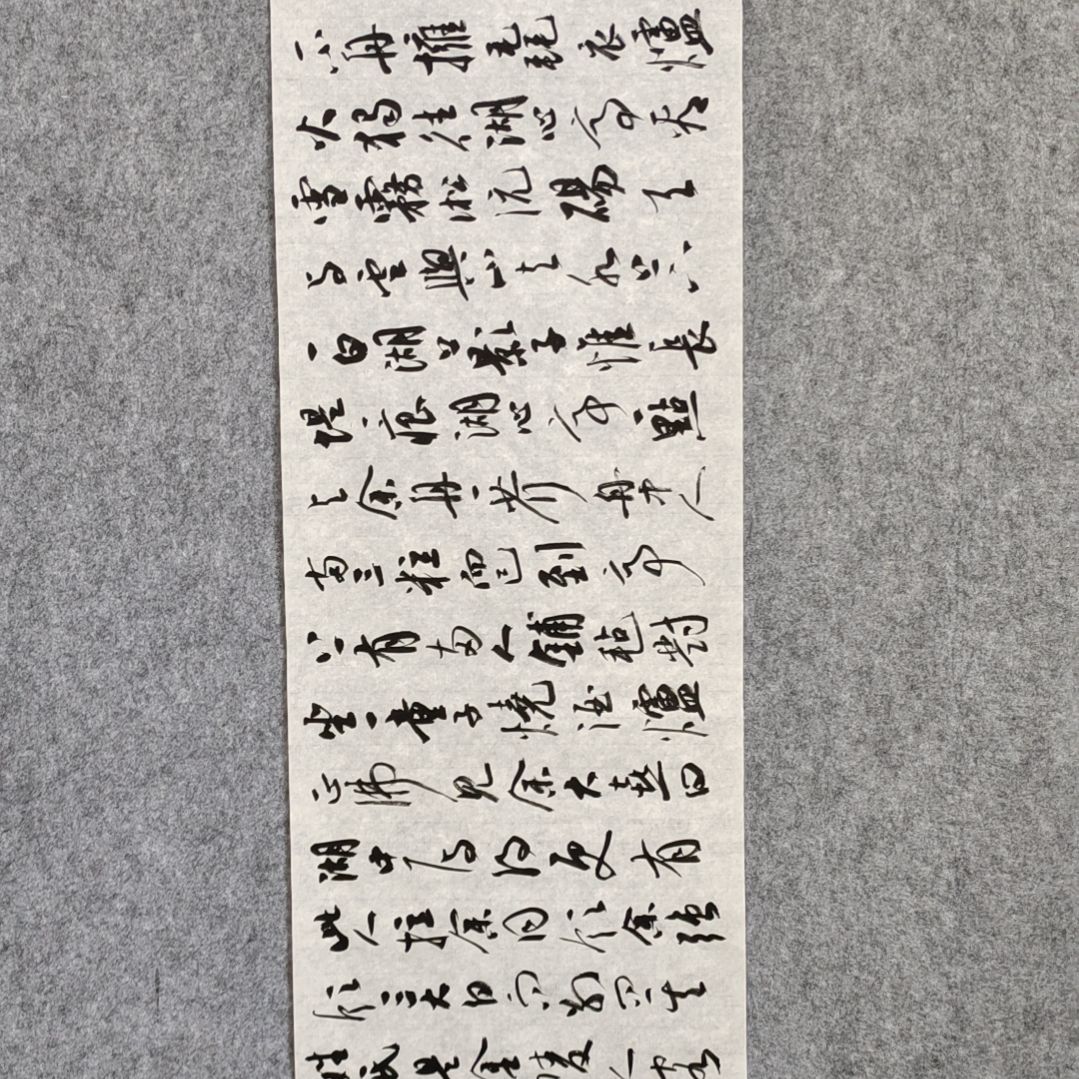 一小舟擁毳衣爐
火獨往湖心亭看
雪霧凇沆碭天
与雲與山与水上下
一白湖上影子惟長
堤一痕湖心亭一點
与余舟一芥舟中人
兩三粒而已到亭
上有兩人鋪氈對
坐一童子燒酒爐
正沸見余大喜曰
湖中焉得更有
此人拉余同飲余強
飲三大白而別問其
姓氏是金陵人客